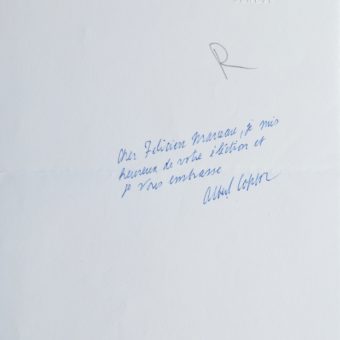 R
Cher Félicien Marceau, je suis
heureux de votre élection et
je vous embrasse
Albert